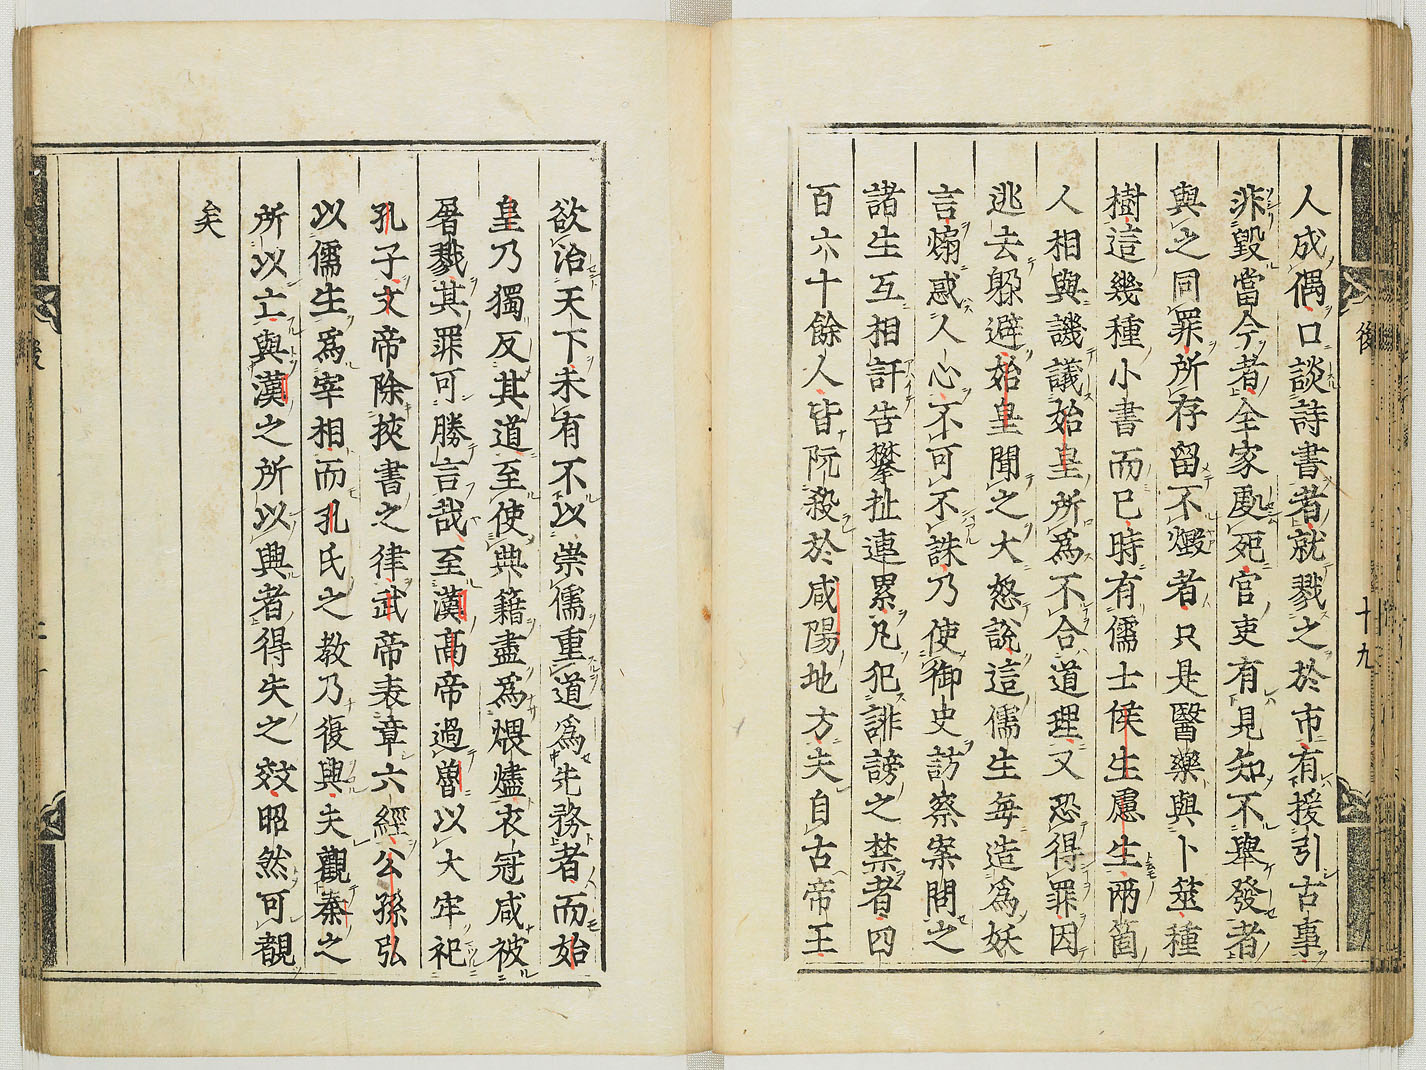 人成偶口談詩書者就戮之於市有援引古事
非毀當今者全家處死官吏有見知不舉發者
與之同罪所存留不燬者只是醫藥與卜筮種
樹這幾種小書而已時有儒士侯生慮生兩箇
人相與譏議始皇所爲不合道理又恐得罪因
逃去躲避始皇聞之大怒說這儒生每造爲妖
言煽惑人心不可不誅乃使御史訪察案問之
諸生互相訐告攀扯連累凡犯誹謗之禁者四
百六十餘人皆阬殺於咸陽地方夫自古帝王
後 十九
欲治天下未有不以崇儒重道爲先務者而始
皇乃獨反其道至使典籍盡爲煨燼衣冠咸被
屠戮其罪可勝言哉至漢高帝過魯以大牢祀
孔子文帝除挾書之律武帝表章六經公孫弘
以儒生爲宰相而孔氏之教乃復興夫觀秦之
所以亡與漢之所以興者得失之效昭然可覩
矣